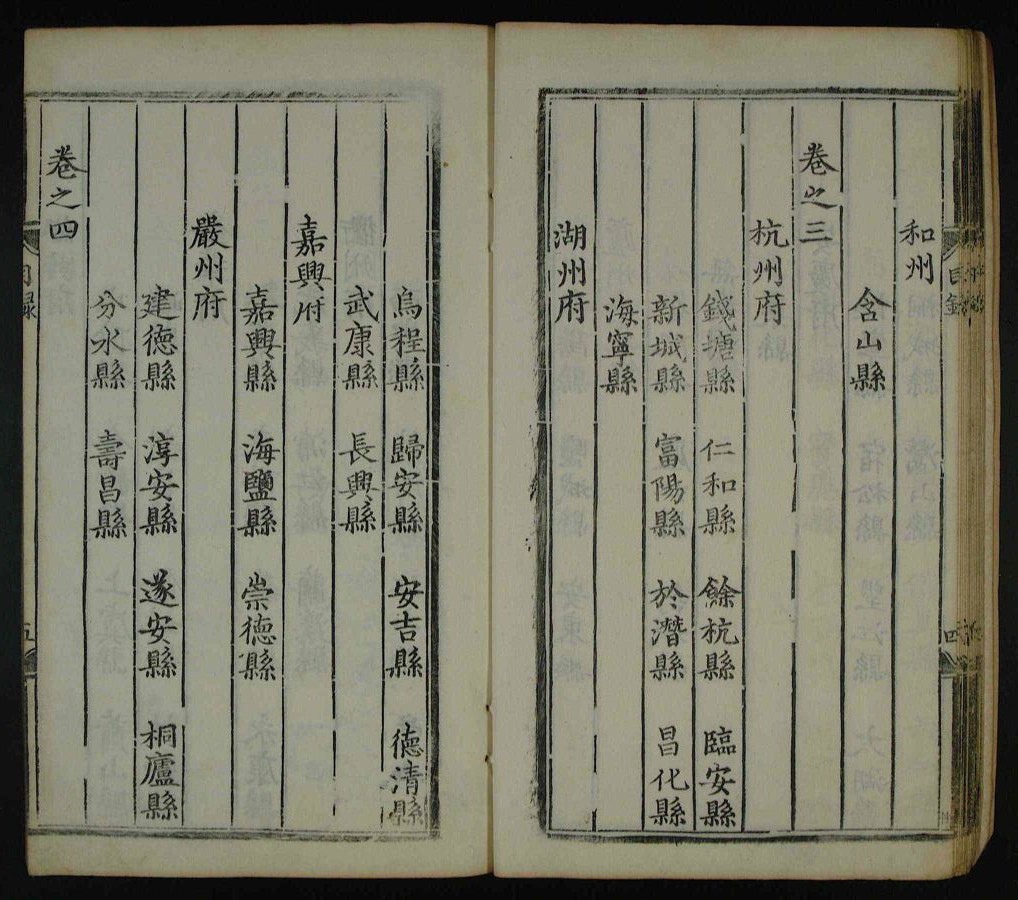 和州
含山縣
卷之三
杭州府
錢塘縣 仁和縣 餘杭縣 臨安縣
新城縣 富陽縣 於潛縣 昌化縣
海寧縣
湖州府
烏程縣 歸安縣 安吉縣 德清縣
武康縣 長興縣
嘉興府
嘉興縣 海鹽縣 崇德縣
嚴州府
建德縣 淳安縣 遂安縣 桐廬縣
分水縣 壽昌縣
卷之四
目錄
五